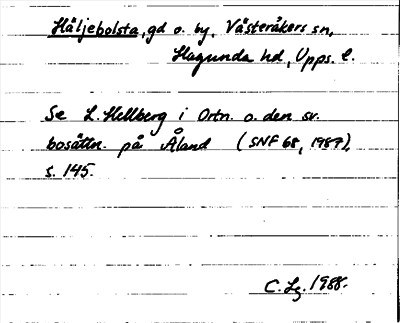 Häljebolsta, gd o. by, Västeråkers sn,
Hagunda hd, Upps. l.
Se L. Hellberg i Ortn. o. den sv.
bosättn. på Åland (SNF 68, 1987),
s. 145.
C. Lg. 1988.